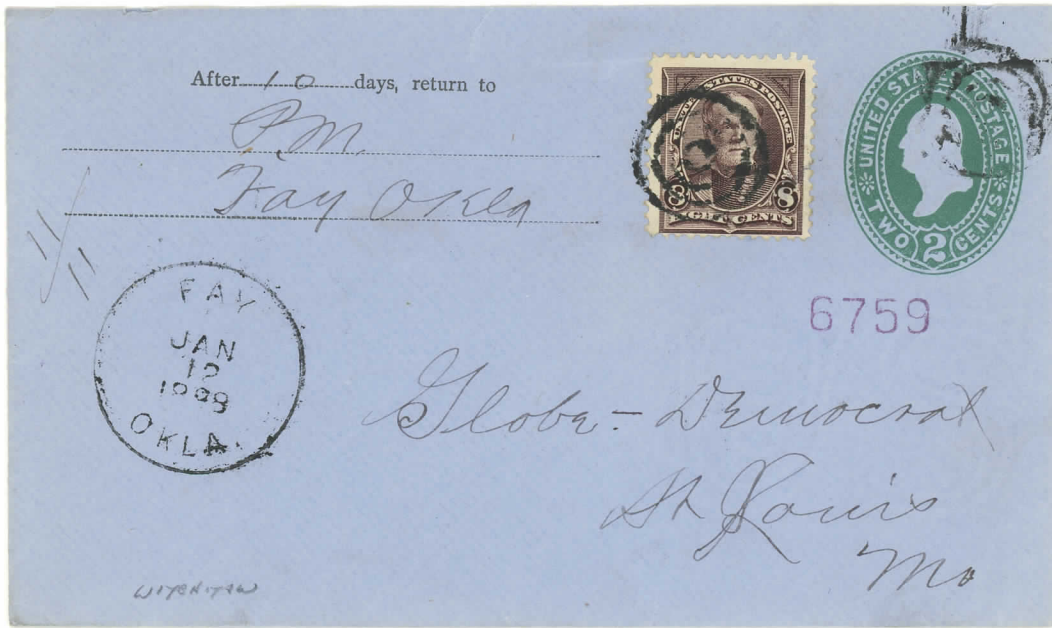 After 10 days, return to
P.M.
Fay Okla
UNITED STATES POSTAGE
8 8
EIGHT CENTS
UNITED STATES POSTAGE
TWO 2 CENTS
6759
11/11
FAY
JAN
12
1898
OKLA.
Globe-Democrat
St Louis
Mo